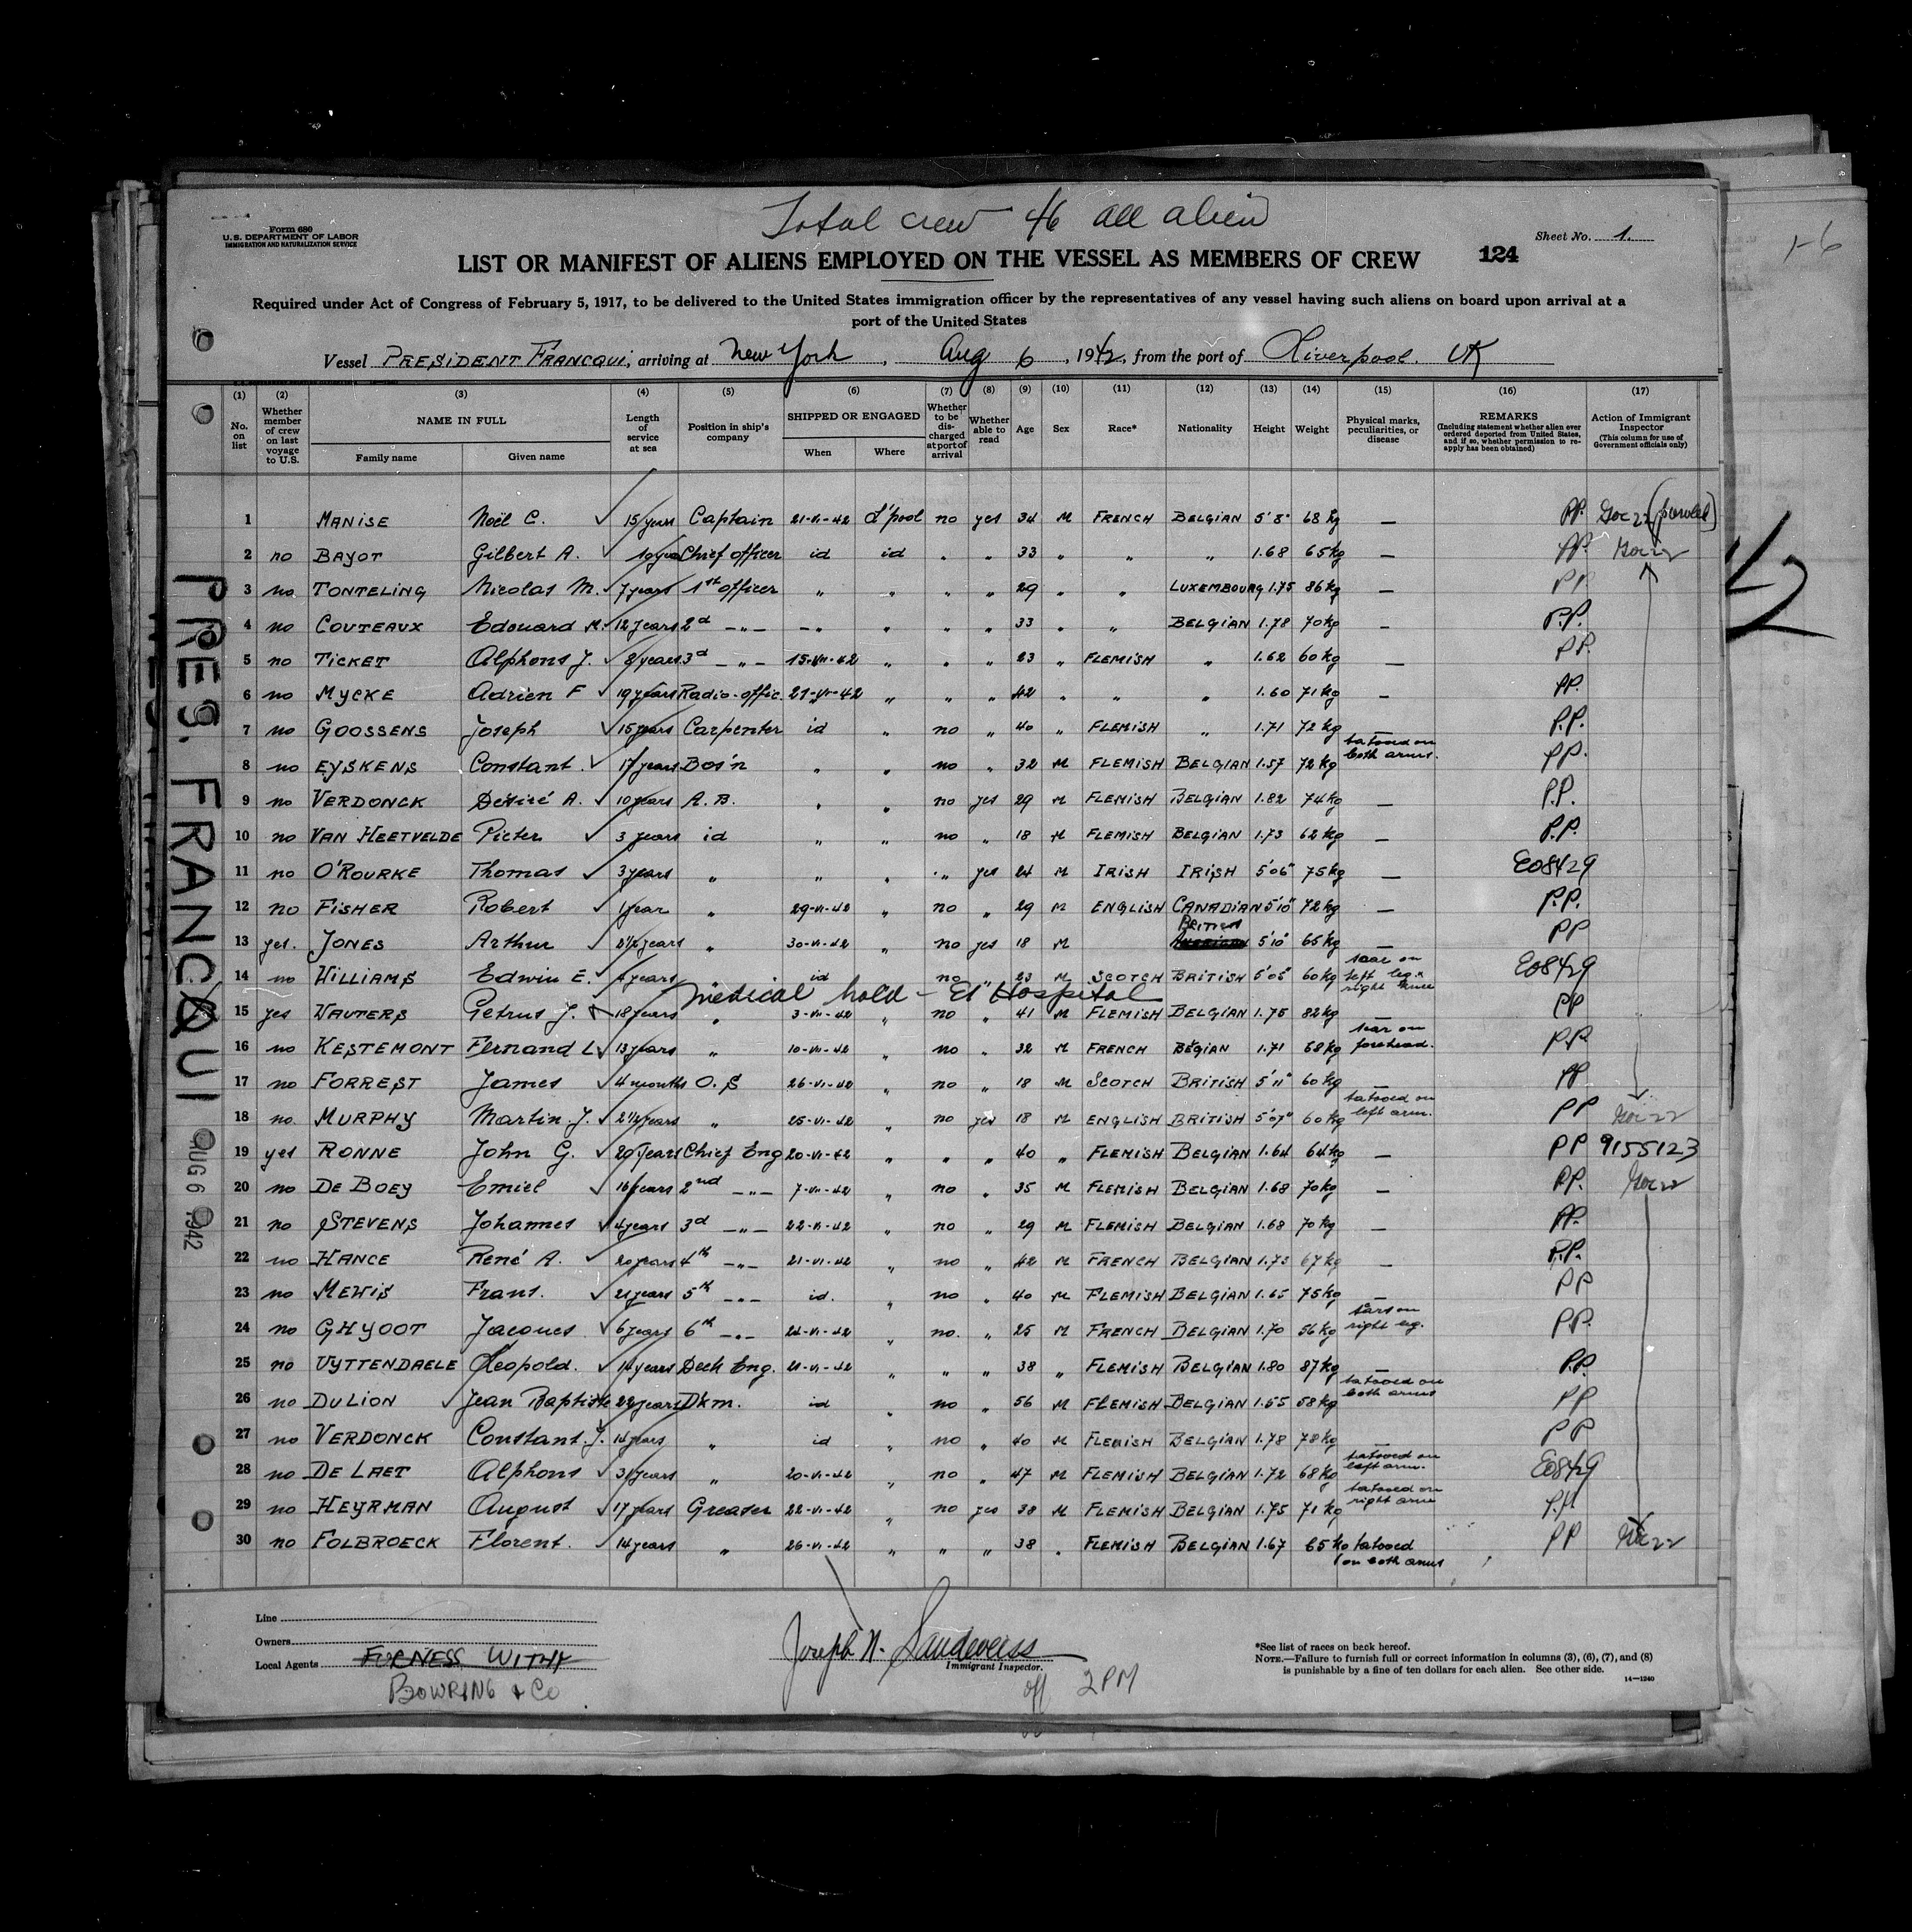 Total crew 46 all alien
Form 680
U.S. DEPARTMENT OF LABOR
IMMIGRATION AND NATURALIZATION SERVICE
Sheet No. 1.
LIST OR MANIFEST OF ALIENS EMPLOYED ON THE VESSEL AS MEMBERS OF CREW 124
Required under Act of Congress of February 5, 1917, to be delivered to the United States immigration officer by the representatives of any vessel having such aliens on board upon arrival at a
port of the United States
Vessel PRESIDENT FRANCQUI, arriving at New York, Aug 6, 1942, from the port of Liverpool. UK
(1) No. on list
(2) Whether member of crew on last voyage to U.S.
(3) NAME IN FULL Family name Given name
(4) Length of service at sea
(5) Position in ship's company
(6) SHIPPED OR ENGAGED When Where
(7) Whether to be discharged at port of arrival
(8) Whether able to read
(9) Age
(10) Sex
(11) Race*
(12) Nationality
(13) Height
(14) Weight
(15) Physical marks, peculiarities, or disease
(16) REMARKS (Including statement whether alien ever ordered deported from United States, and if so, whether permission to reapply has been obtained)
(17) Action of Immigrant Inspector (This column for use of Government officials only)
1 MANISE Noël C. 15 years Captain 21-VI-42 L'pool no yes 34 M FRENCH BELGIAN 5'8" 68 kg — PP.
2 no BAYOT Gilbert A. Chief officer id id " " 33 " " " 1.68 65 kg — PP.
3 no TONTELING Nicolas M. 7 years 1st officer " " " " 29 " " LUXEMBOURG 1.75 86 kg — PP
4 no COUTEAUX Edouard M. 12 years 2d —"— —" " " " 33 " " BELGIAN 1.78 70 kg — P.P.
5 no TICKET Alphons J. 8 years 3d —"— 15-VII-42 " " " 23 " FLEMISH " 1.62 60 kg — PP.
6 no MYCKE Adrien F 19 years Radio-offic. 21-VI-42 " " " 42 " " " 1.60 71 kg — PP.
7 no GOOSSENS Joseph 15 years Carpenter id " no " 40 " FLEMISH " 1.71 72 kg — P.P.
8 no EYSKENS Constant. 17 years Bos'n " " no " 32 M FLEMISH BELGIAN 1.57 72 kg tatooed on both arms. PP.
9 no VERDONCK Désiré A. 10 years A.B. " " no yes 29 M FLEMISH BELGIAN 1.82 74 kg — P.P.
10 no VAN HEETVELDE Pieter 3 years id " " no " 18 M FLEMISH BELGIAN 1.73 62 kg — P.P.
11 no O'ROURKE Thomas 3 years " " " " yes 24 M IRISH IRISH 5'06" 75 kg — E08429
12 no FISHER Robert 1 year " 29-VI-42 " no " 29 M ENGLISH CANADIAN 5'10" 72 kg — P.P.
13 yes. JONES Arthur 2½ years " 30-VI-42 " no yes 18 M BRITISH 5'10" 65 kg — PP
14 no WILLIAMS Edwin E. years " id no " 23 M SCOTCH BRITISH 5'05" 60 kg scar on left leg & right knee E08429
medical hold — EI Hospital
15 yes WAUTERS Petrus J. 18 years " 3-VII-42 " no " 41 M FLEMISH BELGIAN 1.75 82 kg — PP
16 no KESTEMONT Fernand L. 13 years " 10-VII-42 " no " 32 M FRENCH BEGIAN 1.71 68 kg scar on forehead. P.P.
17 no FORREST James 4 months O.S 26-VI-42 " no " 18 M SCOTCH BRITISH 5'11" 60 kg — PP
18 no. MURPHY Martin J. 2½ years " 25-VI-42 " no yes 18 M ENGLISH BRITISH 5'07" 60 kg tatooed on left arm. PP
19 yes RONNE John G. 20 years Chief Eng 20-VI-42 " " " 40 " FLEMISH BELGIAN 1.64 64 kg — PP 9155123
20 no DE BOEY Emiel 16 years 2nd —"— 7-VII-42 " no " 35 M FLEMISH BELGIAN 1.68 70 kg — P.P.
21 no STEVENS Johannes 4 years 3d —"— 22-VI-42 " no " 29 M FLEMISH BELGIAN 1.68 70 kg — PP.
22 no HANCE René A. 20 years 4th —"— 21-VI-42 " no " 42 M FRENCH BELGIAN 1.73 67 kg — P.P.
23 no MEWIS Frans. 21 years 5th —"— id. " no " 40 M FLEMISH BELGIAN 1.65 75 kg — PP
24 no GHYOOT Jacques 6 years 6th —"— 24-VI-42 " no. " 25 M FRENCH BELGIAN 1.70 56 kg right leg. P.P.
25 no UYTTENDAELE Leopold. 14 years Deck Eng. 21-VI-42 " " " 38 " FLEMISH BELGIAN 1.80 87 kg — P.P.
26 no DULION Jean Baptiste 22 years Dkm. id " no " 56 M FLEMISH BELGIAN 1.65 58 kg tatooed on both arms PP
27 no VERDONCK Constant. J. 14 years " id " no " 40 M FLEMISH BELGIAN 1.78 78 kg — PP
28 no DE LAET Alphons 31 years " 20-VI-42 " no " 47 M FLEMISH BELGIAN 1.72 68 kg tatooed on left arm. E08429
29 no HEYRMAN August 17 years Greaser 22-VI-42 " no yes 38 M FLEMISH BELGIAN 1.75 71 kg tatooed on right arm
30 no FOLBROECK Florent. 14 years " 26-VI-42 " " " 38 " FLEMISH BELGIAN 1.67 65 kg tatooed on both arms PP
PRES. FRANCQUI
AUG 6 1942
1-6
Line
Owners
Local Agents FURNESS WITHY
BOWRING & Co
Joseph N. Sandweiss
Immigrant Inspector.
off 2 PM
*See list of races on back hereof.
NOTE.—Failure to furnish full or correct information in columns (3), (6), (7), and (8)
is punishable by a fine of ten dollars for each alien. See other side.
14—1240